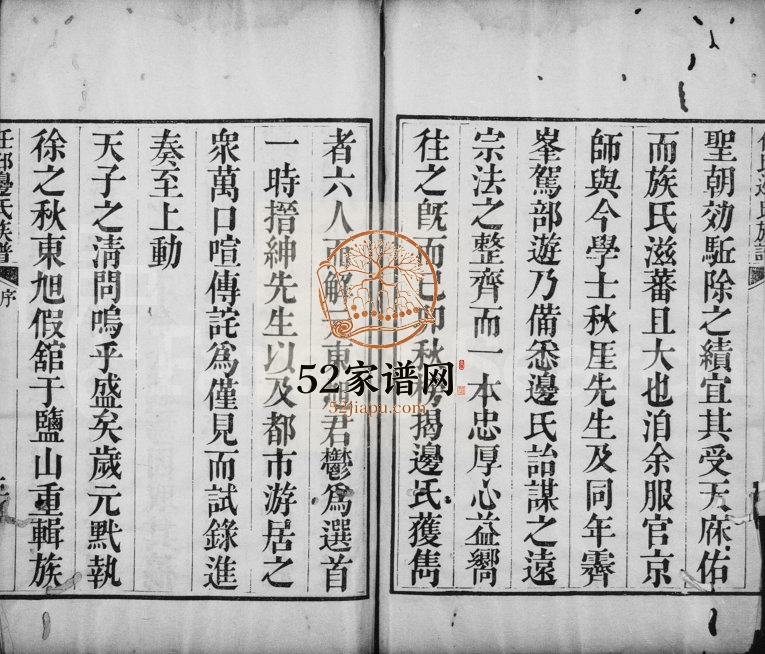 聖朝効駈除之績宜其受天庥佑
而族氏滋蕃且大也洎余服官京
師與今學士秋厓先生及同年霽
峯駕部遊乃備悉邊氏詒謀之遠
宗法之整齊而一本忠厚心益嚮
往之旣而己卯秋榜揭邊氏獲雋
者六人而解元東君鬱爲選首
一時搢紳先生以及都市游居之
衆萬口喧傳詫爲僅見而試錄進
奏至上動
天子之淸問嗚乎盛矣歲元黓執
徐之秋東旭假舘于鹽山重輯族
任邱邊氏族譜 序
52家谱网
52jiapu.com